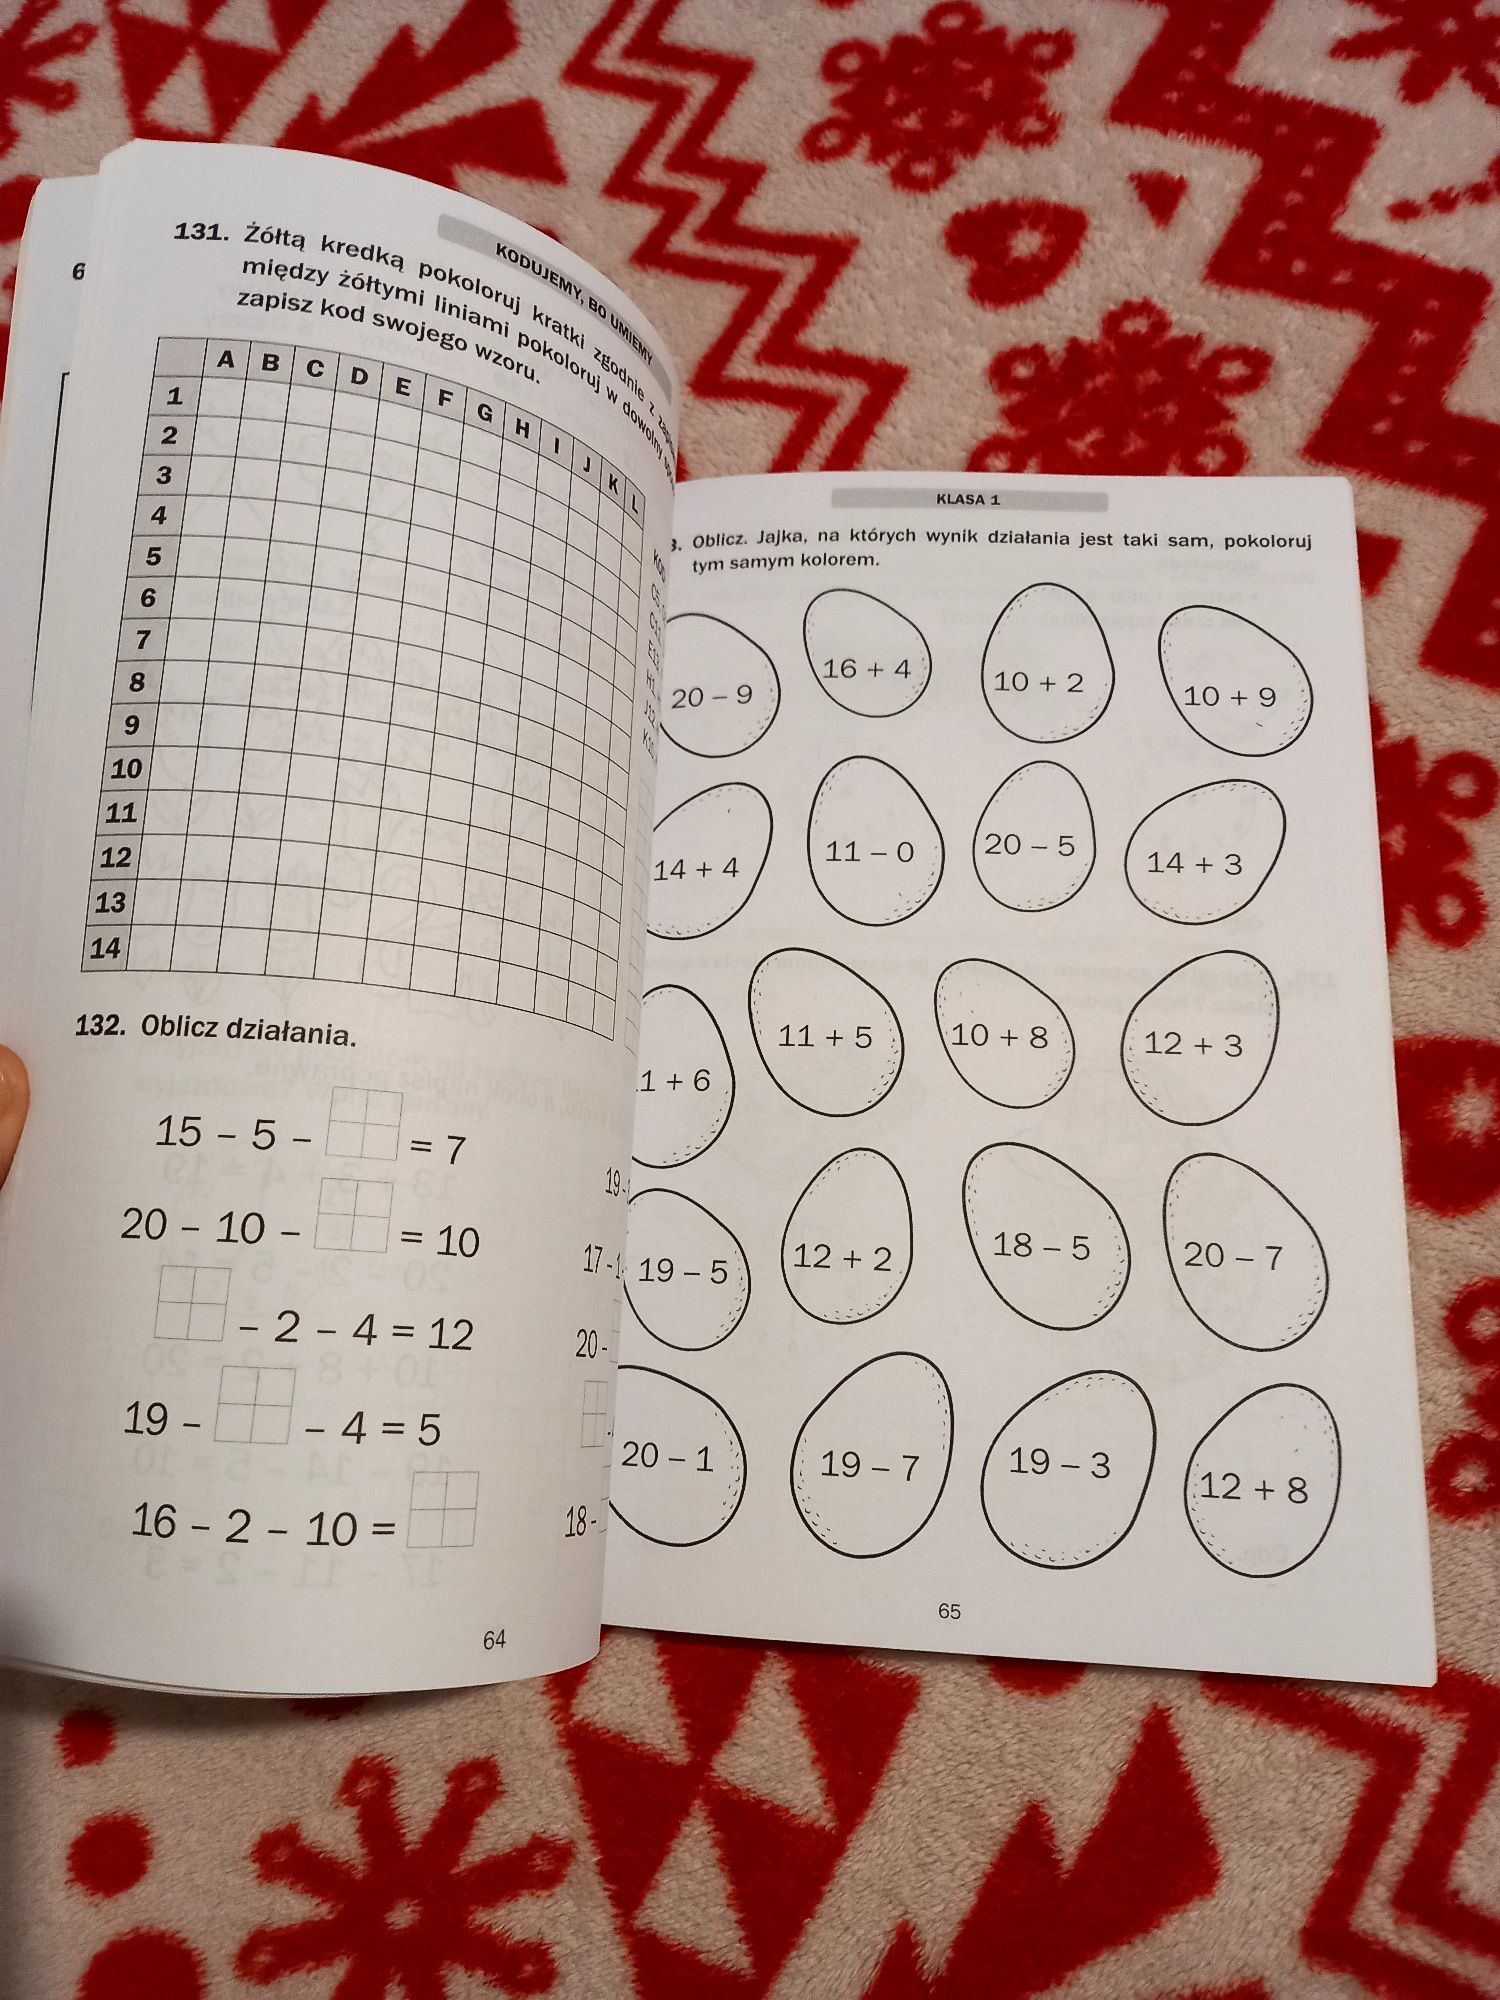 6
KODUJEMY, BO UMIEMY
131. Żółtą kredką pokoloruj kratki zgodnie z
między żółtymi liniami pokoloruj w dowolny
zapisz kod swojego wzoru.
A B C D E F G H I J K L
1
2
3
4
5
6
7
8
9
10
11
12
13
14
132. Oblicz działania.
15 – 5 – = 7
20 – 10 – = 10
– 2 – 4 = 12
19 – – 4 = 5
16 – 2 – 10 =
19 -
17 - 1
20 -
18 -
64
KLASA 1
3. Oblicz. Jajka, na których wynik działania jest taki sam, pokoloruj
tym samym kolorem.
20 – 9 16 + 4 10 + 2 10 + 9
14 + 4 11 – 0 20 – 5 14 + 3
1 + 6 11 + 5 10 + 8 12 + 3
19 – 5 12 + 2 18 – 5 20 – 7
20 – 1 19 – 7 19 – 3 12 + 8
65